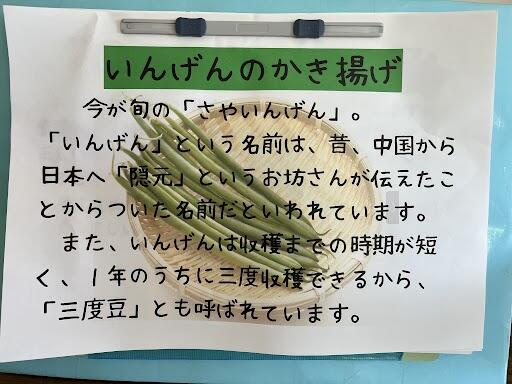 いんげんのかき揚げ
今が旬の「さやいんげん」。
「いんげん」という名前は、昔、中国から
日本へ「隠元」というお坊さんが伝えたこ
とからついた名前だといわれています。
また、いんげんは収穫までの時期が短
く、１年のうちに三度収穫できるから、
「三度豆」とも呼ばれています。